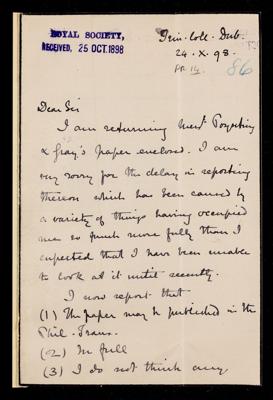 ROYAL SOCIETY,
RECEIVED, 25 OCT. 1898
Trin. Coll. Dub.
24. X. 98.
RR. 14
86
Dear Sir
I am returning Mess<sup>rs</sup> Poynting
& Gray's paper enclosed. I am
very sorry for the delay in reporting
thereon which has been caused by
a variety of things having occupied
me so much more fully than I
expected that I have been unable
to look at it until recently.
I now report that
(1) The paper may be published in the
Phil. Trans.
(2) In full
(3) I do not think any